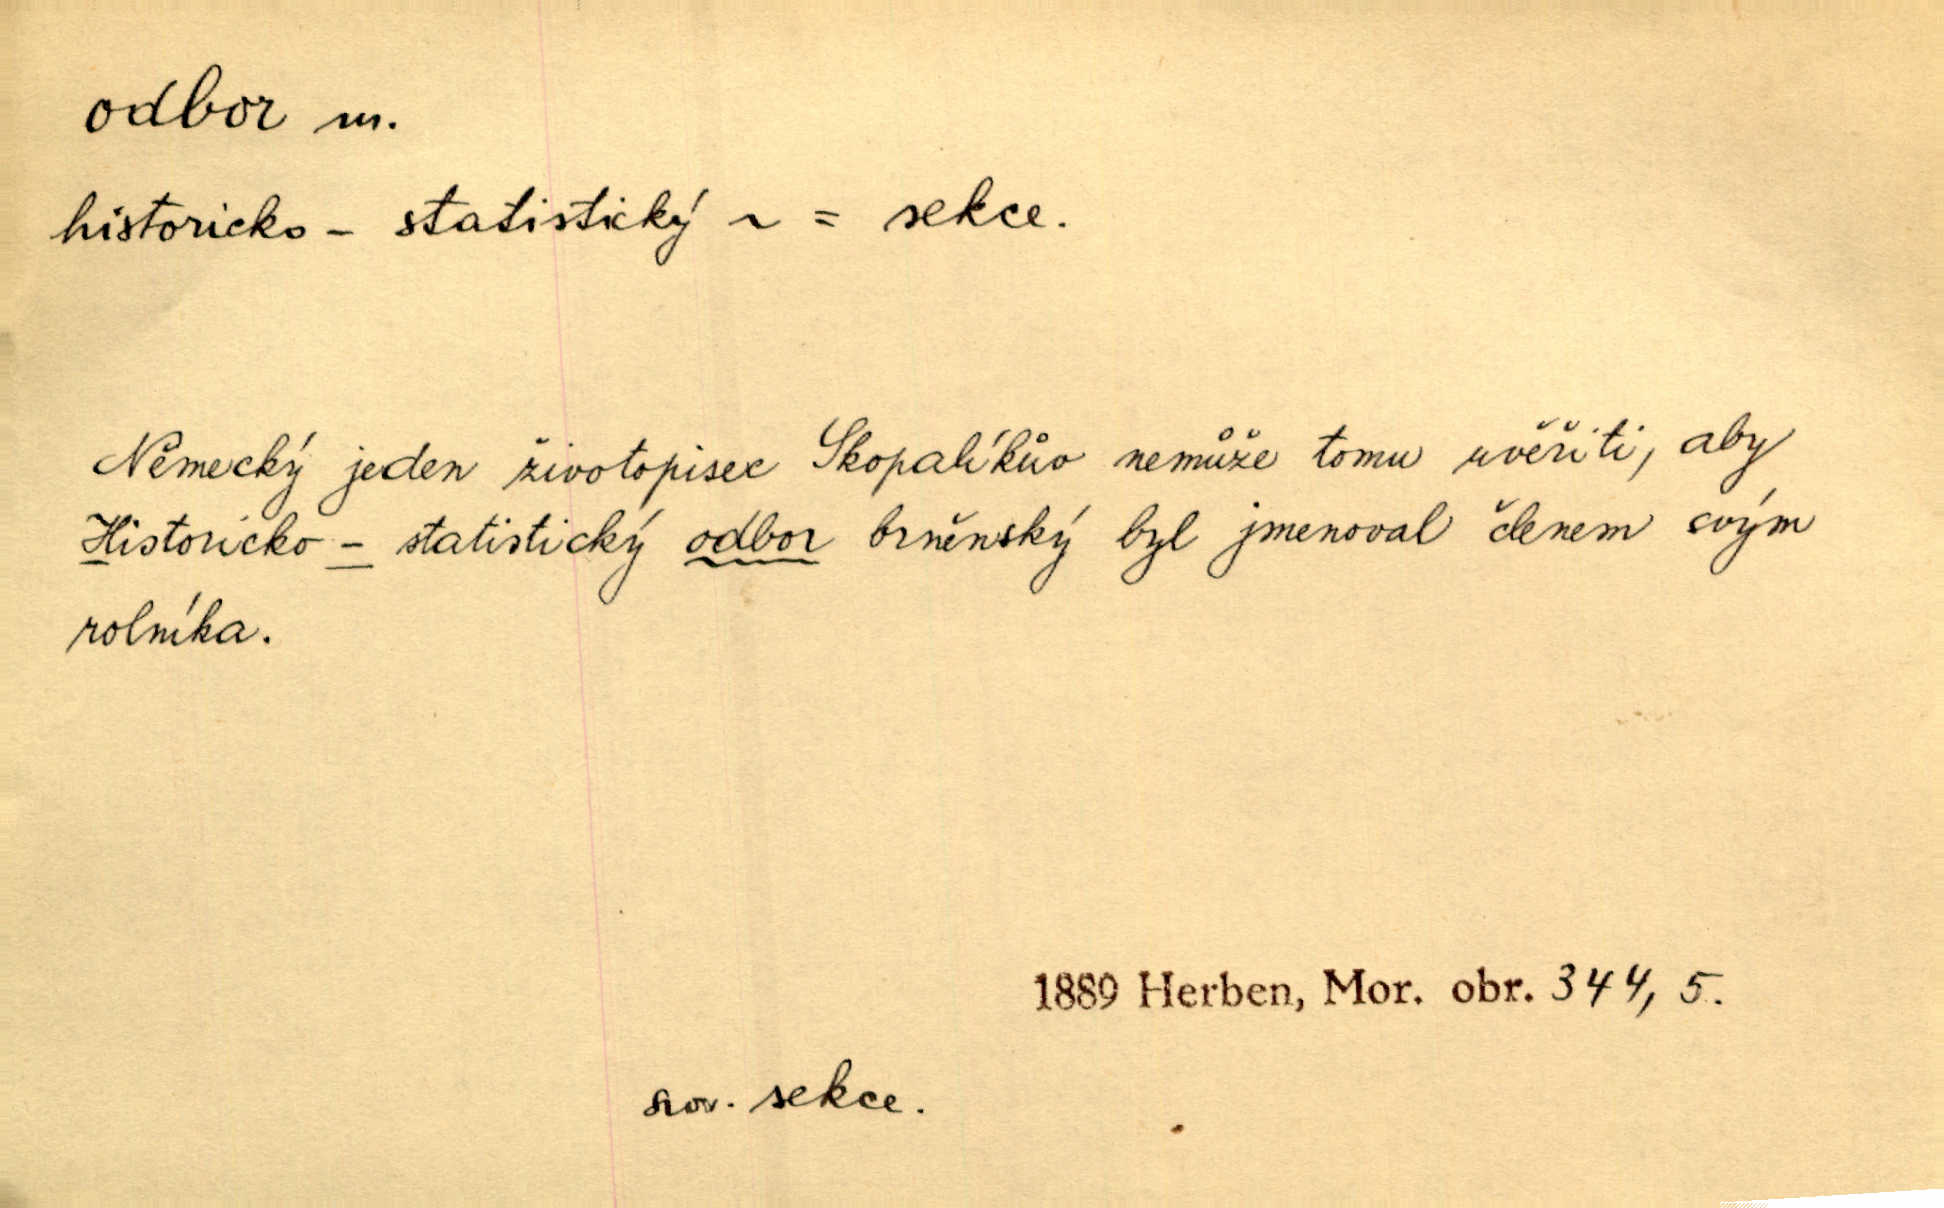 odbor m.
historicko - statistický ~ = sekce.
Německý jeden životopisec Skopalíkův nemůže tomu uvěřiti, aby
Historicko - statistický odbor brněnský byl jmenoval členem svým
rolníka.
1889 Herben, Mor. obr. 344, 5.
srov. sekce.